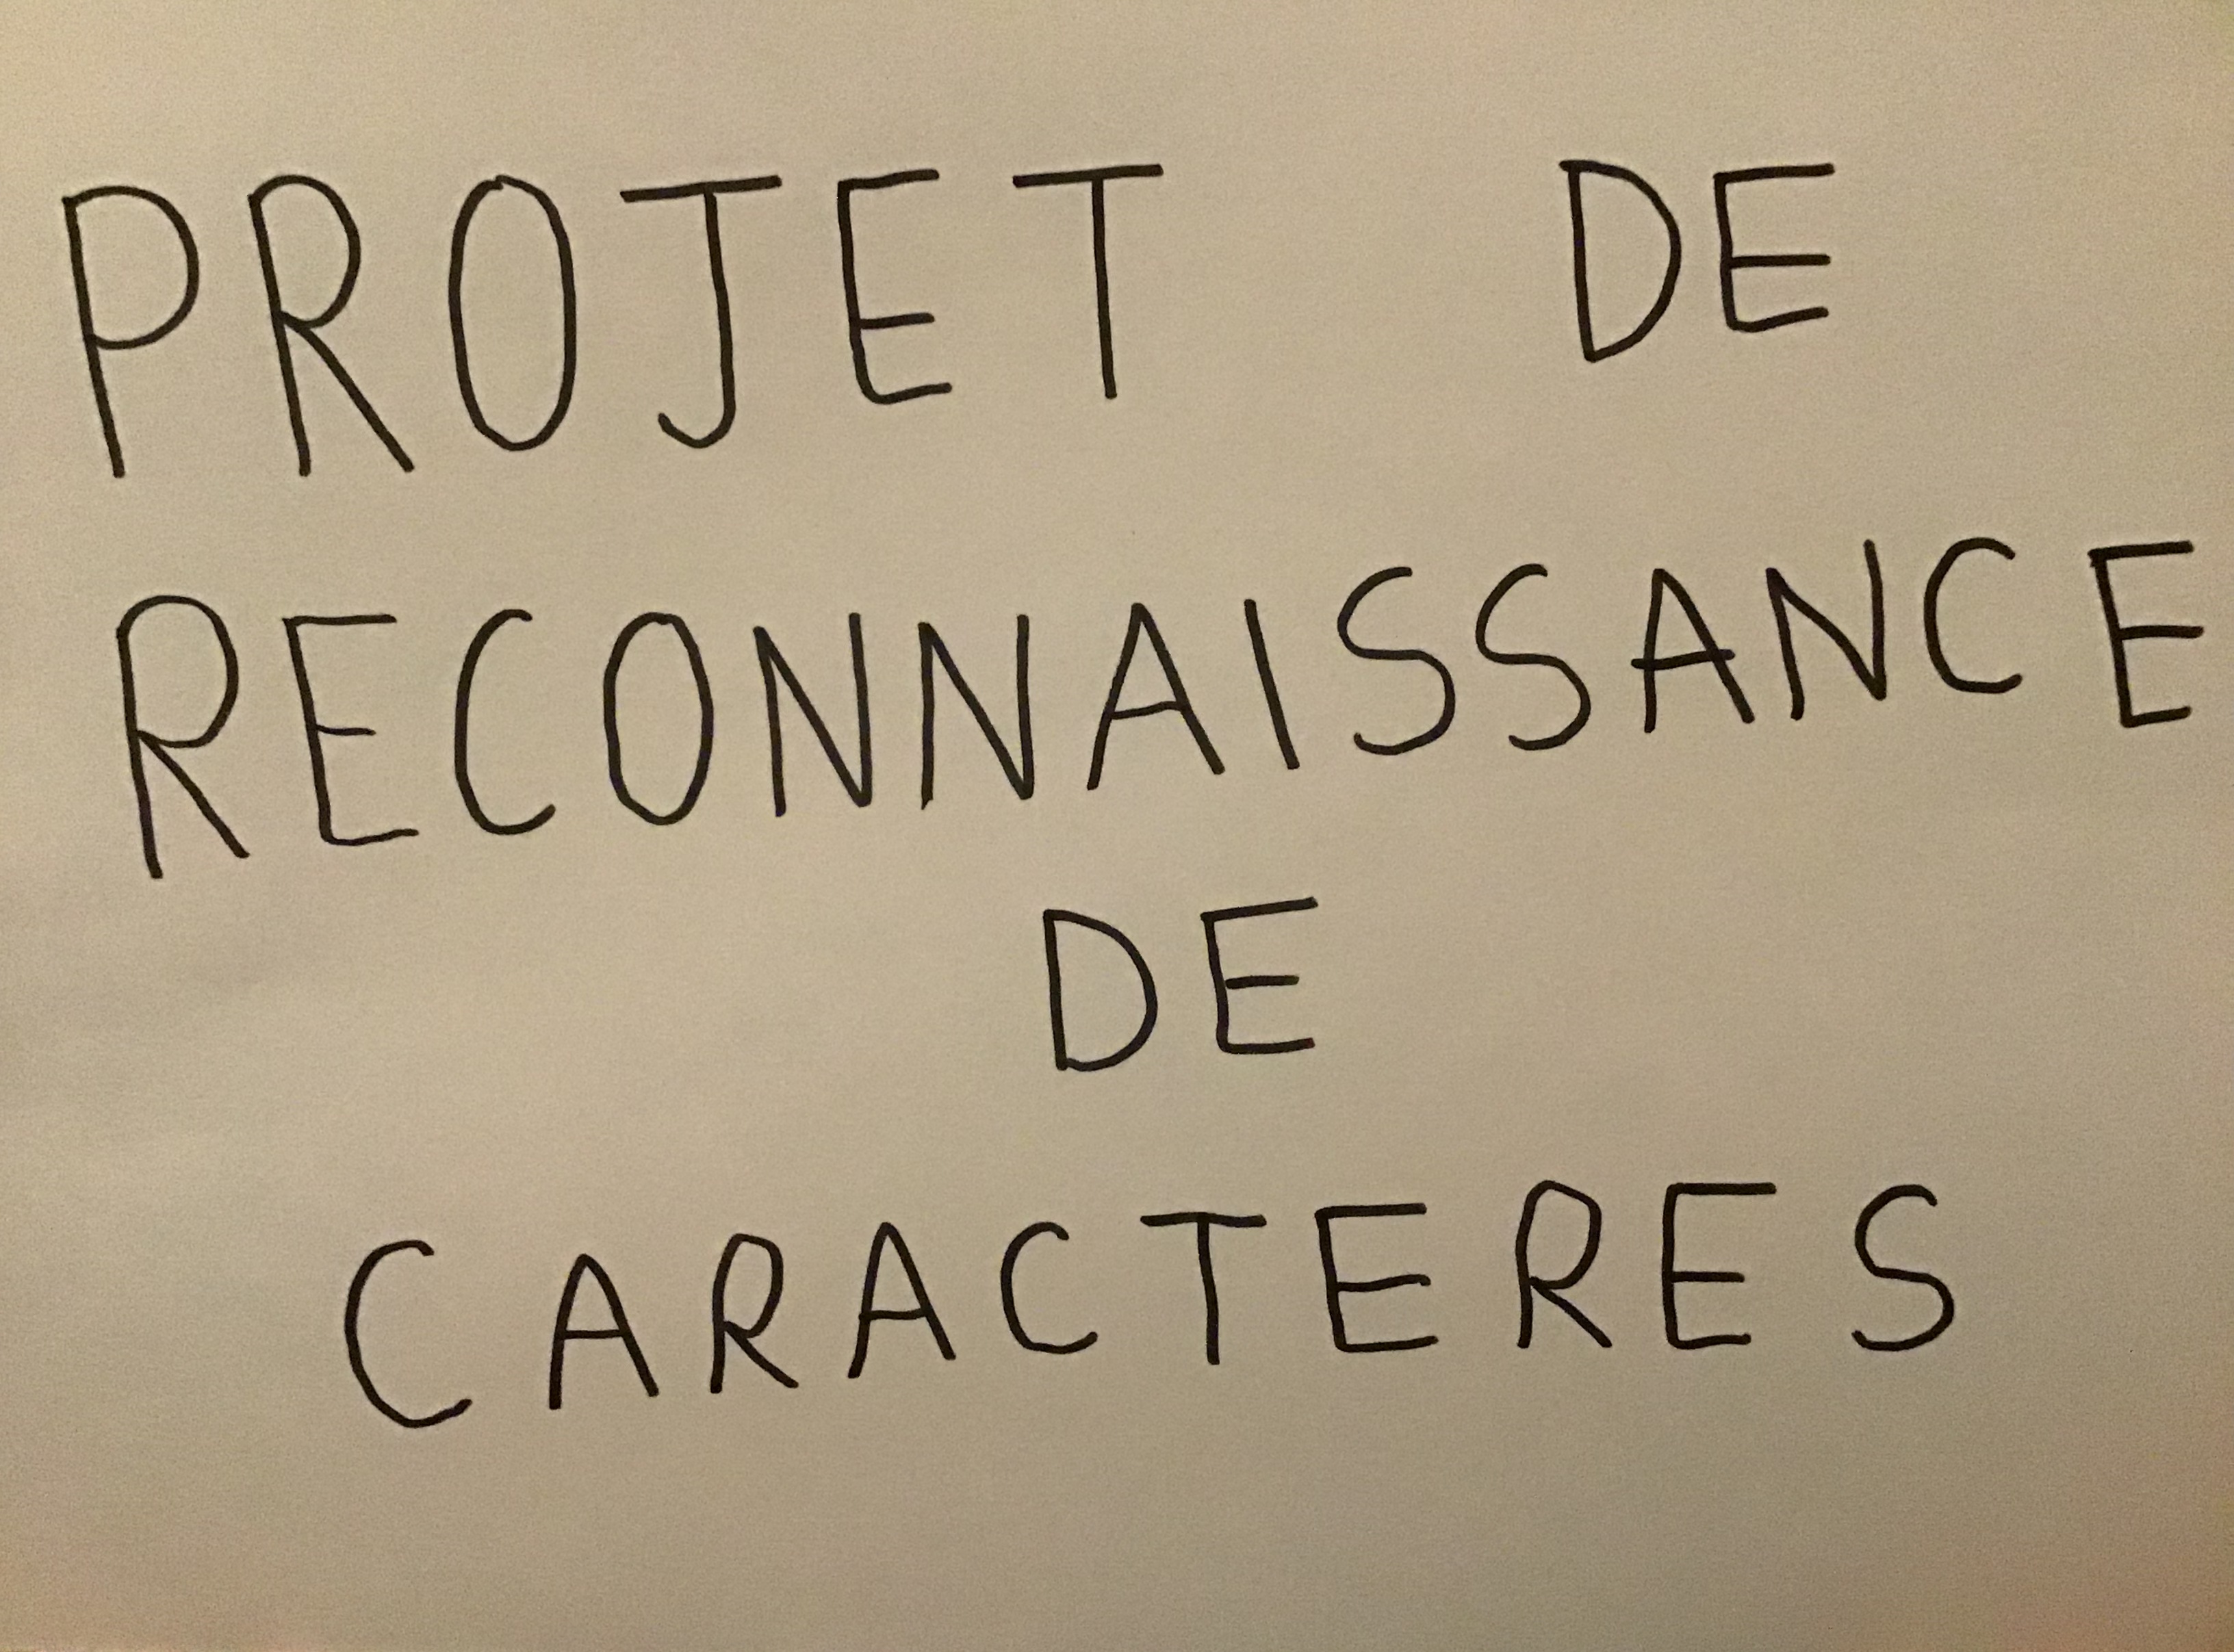 PROJET DE
RECONNAISSANCE
DE
CARACTERES